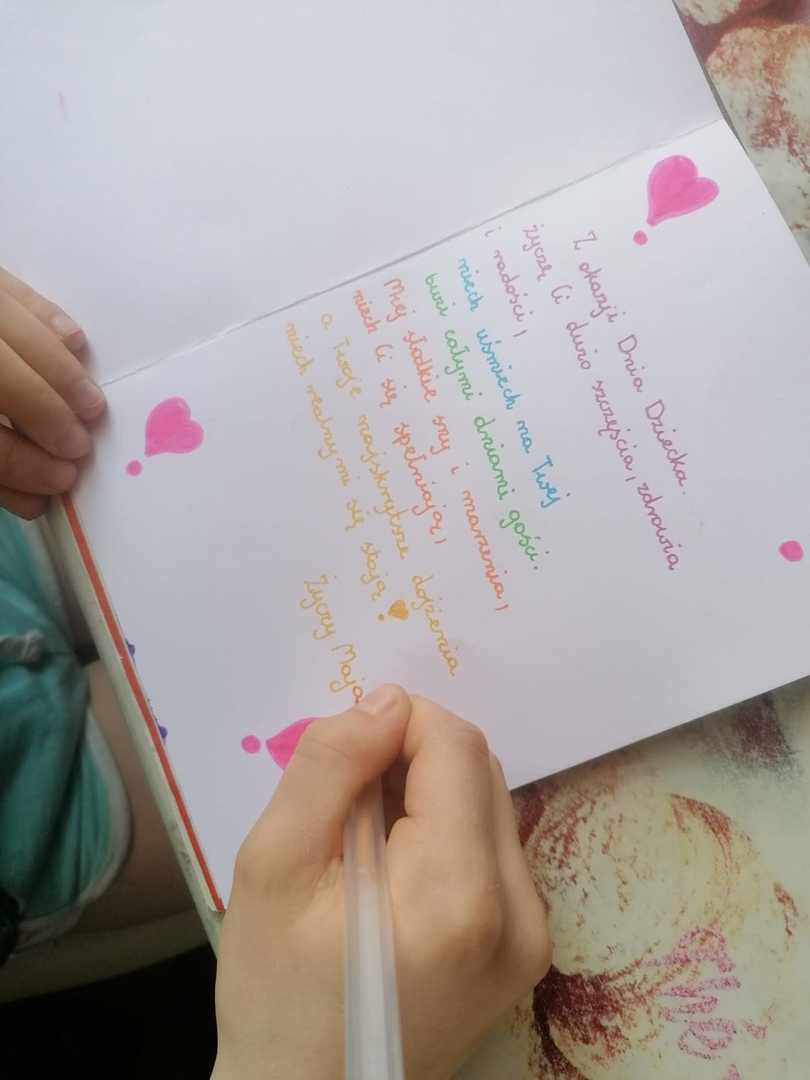 Z okazji Dnia Dziecka.
życzę Ci dużo szczęścia, zdrowia
i radości,
niech uśmiech na Twej
buzi całymi dniami gości.
Miej słodkie sny i marzenia,
niech Ci się spełniają,
a Twoje najskrytsze dojżenia
niech realnymi się stają
Życzy Maja